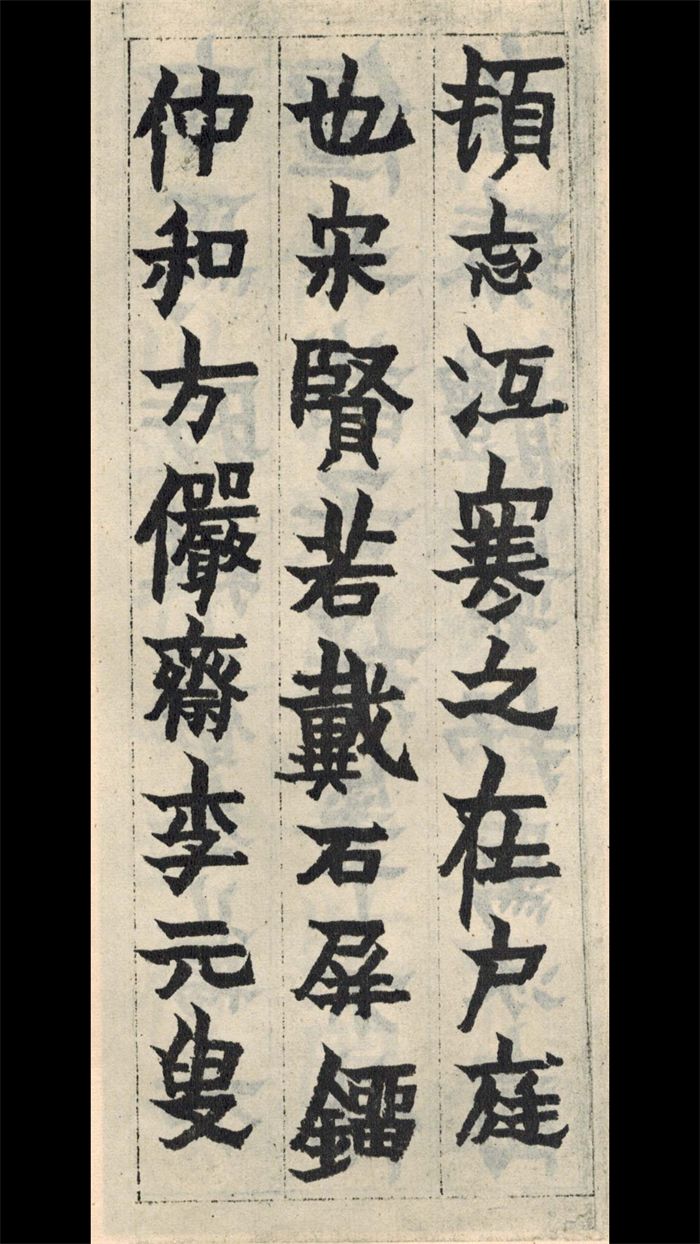 頓忘江寒之在户庭
也宋賢若戴石屏鐂
仲和方儼齋李元叟